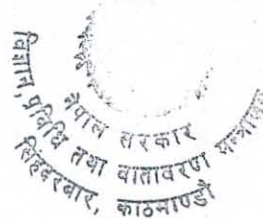 नेपाल सरकार
विज्ञान, प्रविधि तथा वातावरण मन्त्रालय
सिंहदरबार, काठमाण्डौ